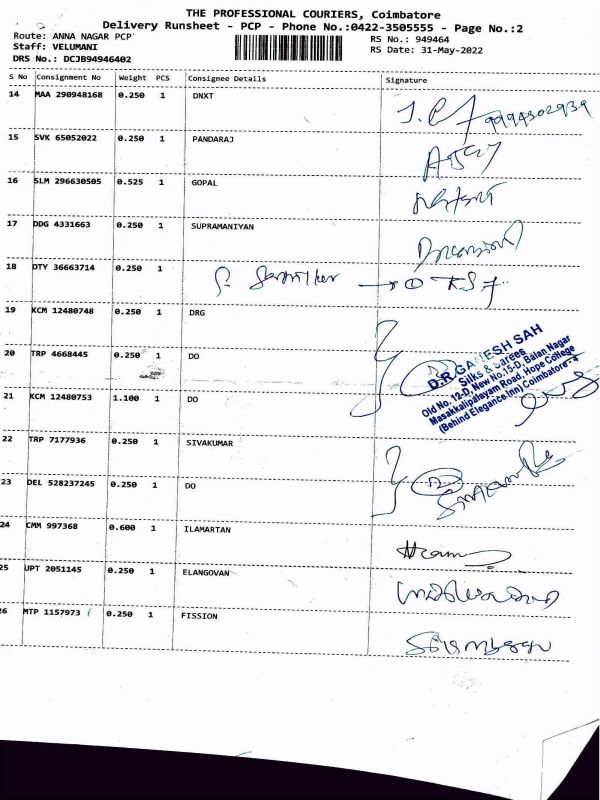 THE PROFESSIONAL COURIERS, Coimbatore
Delivery Runsheet - PCP - Phone No.:0422-3505555 - Page No.:2
Route: ANNA NAGAR PCP
RS No.: 949464
Staff: VELUMANI
RS Date: 31-May-2022
DRS No.: DCJB94946402
S No Consignment No Weight PCS Consignee Details Signature
14 MAA 290948168 0.250 1 DNXT
9994302939
15 SVK 65052022 0.250 1 PANDARAJ
16 SLM 296630505 0.525 1 GOPAL
17 DDG 4331663 0.250 1 SUPRAMANIYAN
18 OTY 36663714 0.250 1
19 KCM 12480748 0.250 1 DRG
20 TRP 4668445 0.250 1 DO
21 KCM 12480753 1.100 1 DO
D.R.GANESH SAH
Silks & Sarees
Old No. 12-D, New No.15-D, Balan Nagar
Masakkalipalayam Road, Hope College
(Behind Elegance Inn) Coimbatore - 4
22 TRP 7177936 0.250 1 SIVAKUMAR
23 DEL 528237245 0.250 1 DO
24 CMM 997368 0.600 1 ILAMARTAN
25 UPT 2051145 0.250 1 ELANGOVAN
26 MTP 1157973 0.250 1 FISSION